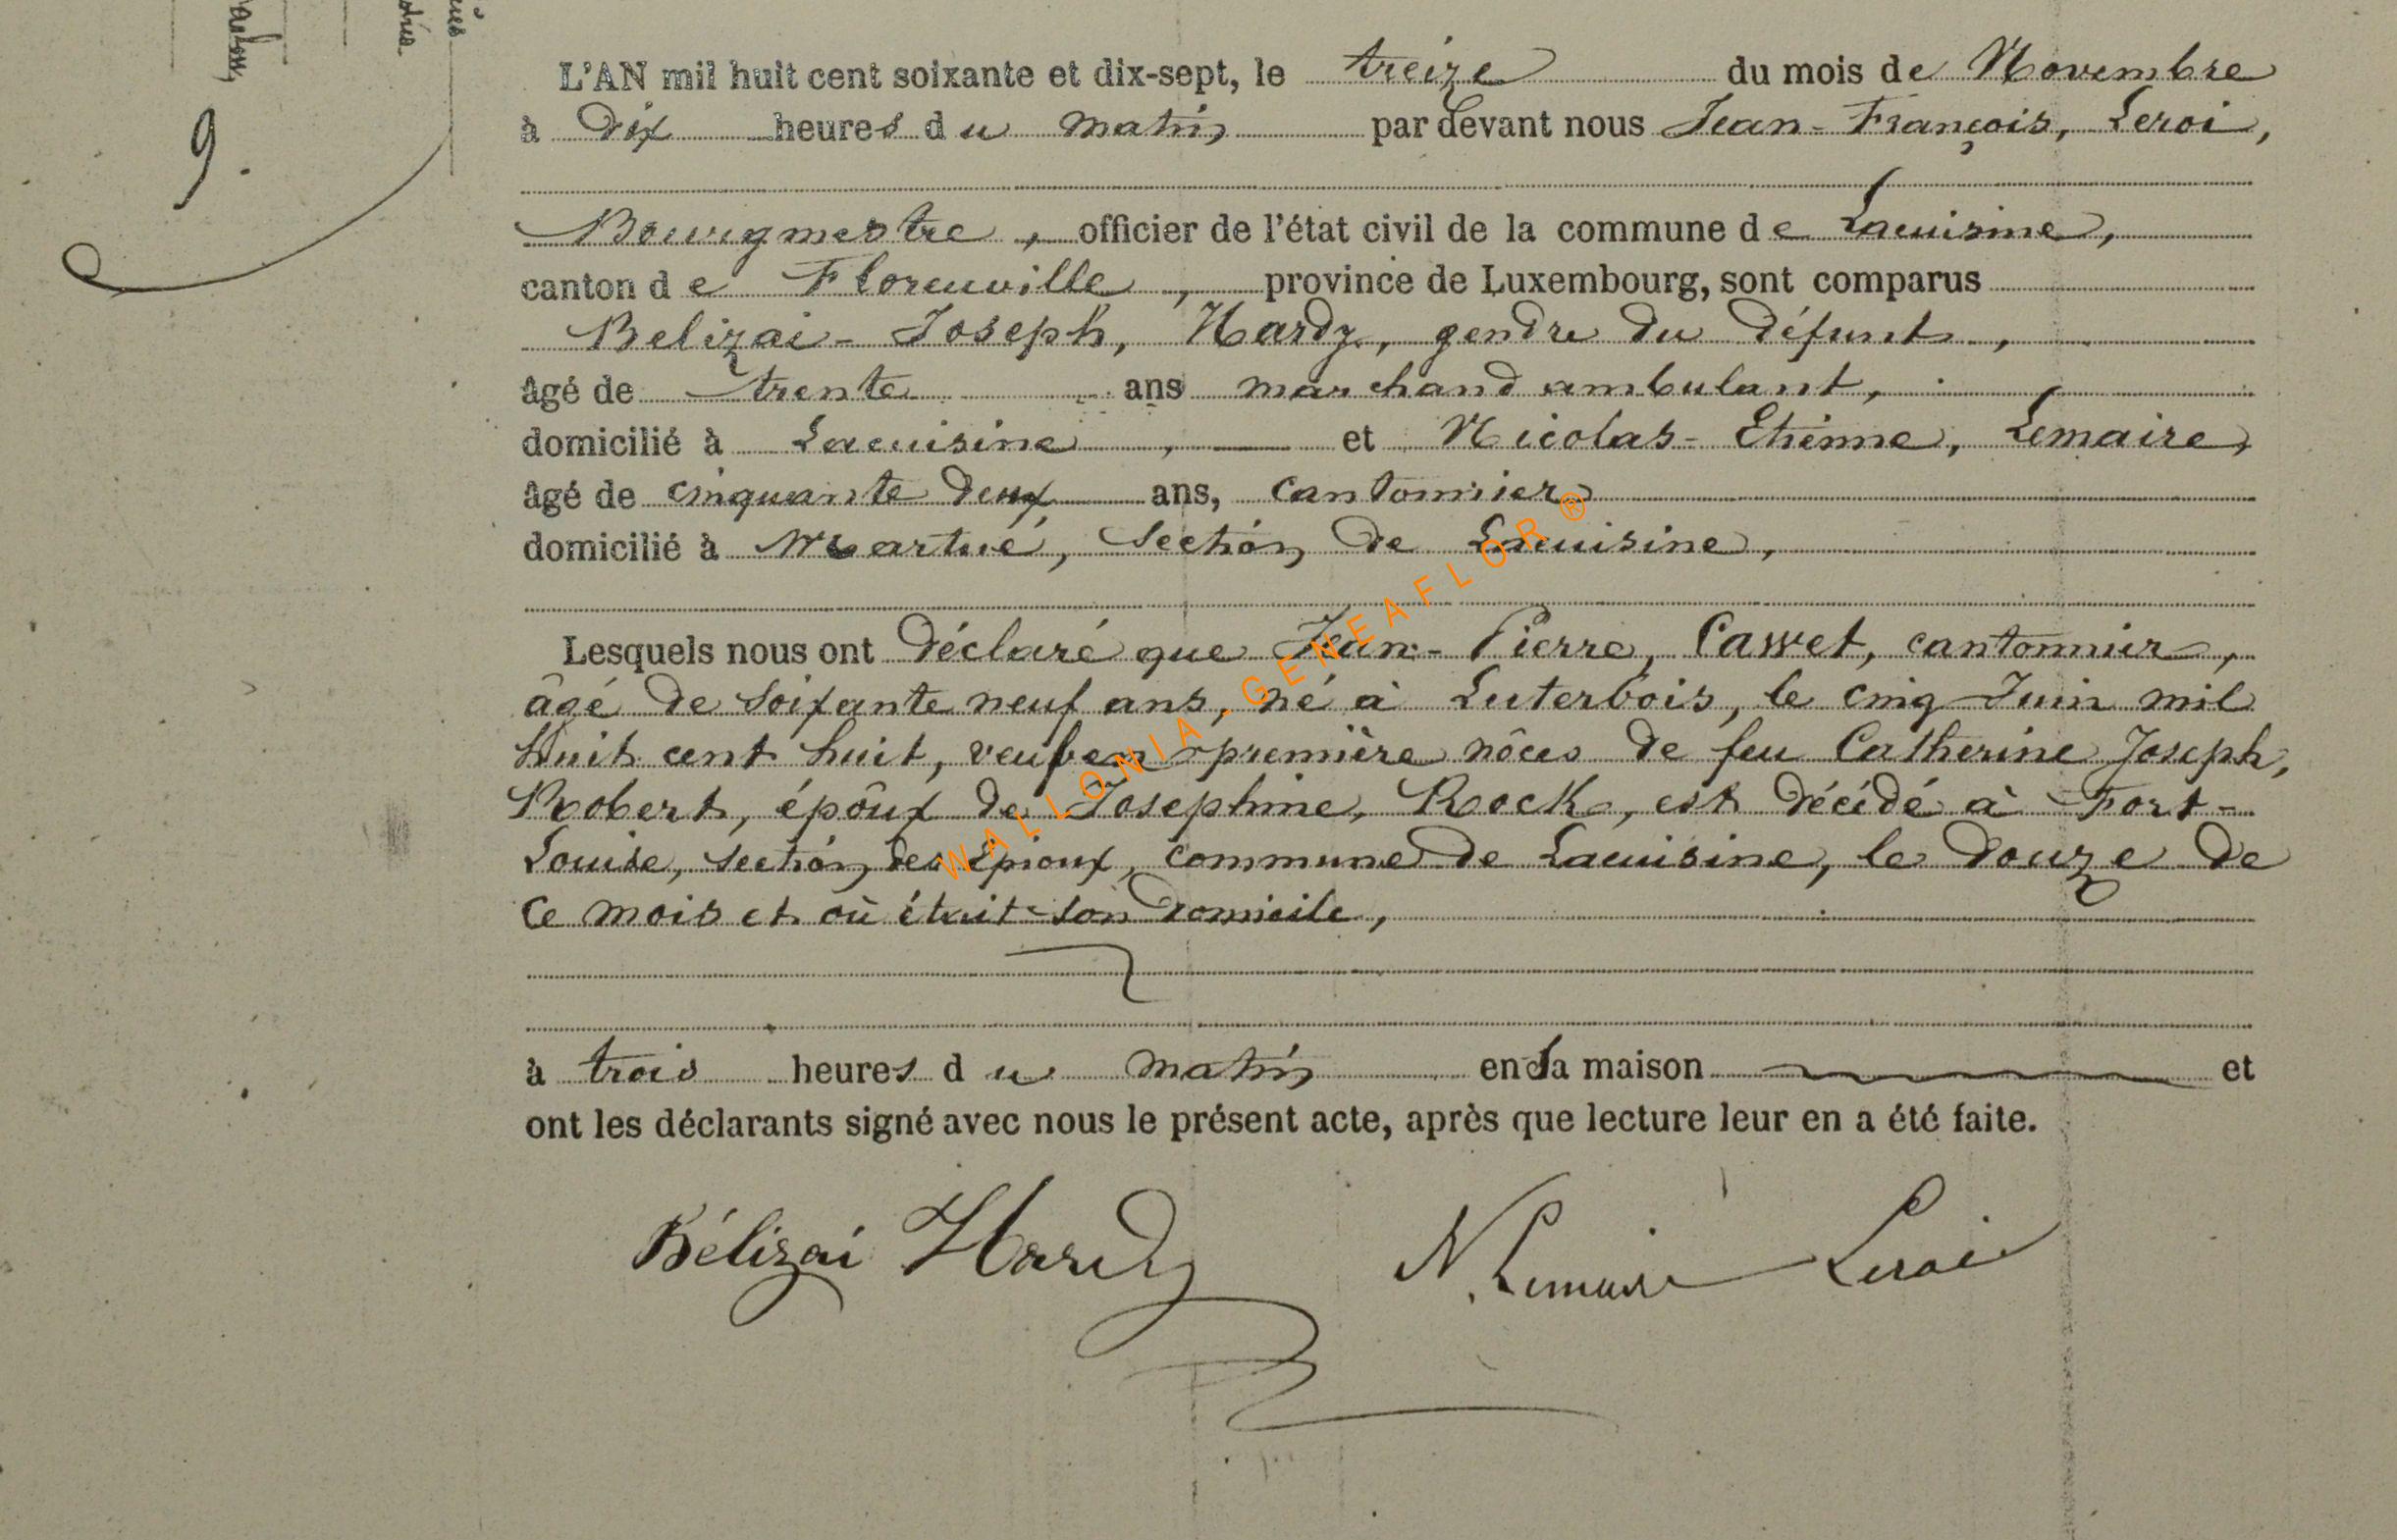 9.
L'AN mil huit cent soixante et dix-sept, le treize du mois de Novembre
à dix heures du matin par devant nous Jean-François, Leroi,
Bourgmestre, officier de l'état civil de la commune de Lacuisine,
canton de Florenville, province de Luxembourg, sont comparus
Belizai-Joseph, Hardy, gendre du défunt,
âgé de trente ans marchand ambulant,
domicilié à Lacuisine, et Nicolas-Etienne, Lemaire,
âgé de cinquante deux ans, cantonnier
domicilié à Martué, section de Lacuisine,
Lesquels nous ont déclaré que Jean-Pierre, Cawet, cantonnier,
âgé de soixante neuf ans, né à Luterbois, le cinq Juin mil
huit cent huit, veuf en première nôces de feu Catherine Joseph,
Robert, époux de Josephine, Rock, est décédé à Fort-
Louise, section des Epioux, commune de Lacuisine, le douze de
ce mois et où était son domicile,
à trois heures du matin en sa maison et
ont les déclarants signé avec nous le présent acte, après que lecture leur en a été faite.
Bélizai Hardy N. Lemaire Leroi
WALLONIA-GENEAFLOR®